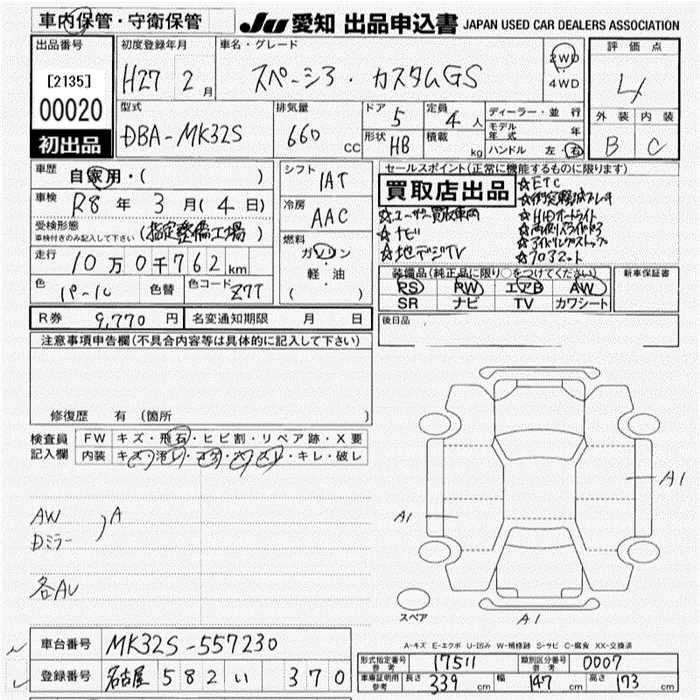 車内保管・守衛保管
JU 愛知 出品申込書 JAPAN USED CAR DEALERS ASSOCIATION
出品番号
[2135]
00020
初出品
初度登録年月
H27 2月
車名・グレード
スペーシア・カスタムGS
2WD
4WD
評価点
4
外装 内装
B C
型式
DBA-MK32S
排気量
660 CC
ドア 5
定員 4人
形状 HB
積載 kg
ディーラー・並行
モデル年式 年
ハンドル 左・右
車歴
自家用・( )
車検
R8年 3月(4日)
受検形態
車検付きのみ記入して下さい
(指定整備工場)
走行
10万0千762km
色
パール
色替
色コード Z7T
シフト
IAT
冷房
AAC
燃料
ガソリン
軽・油
( )
セールスポイント(正常に機能するものに限ります)
買取店出品
☆ユーザー買取車両
☆ナビ
☆地デジTV
☆ETC
☆衝突軽減ブレーキ
☆HIDオートライト
☆両側スライドドア
☆アイドリングストップ
☆フロアマット
装備品(純正品に限り○をつけてください)
PS PW エアB AW
SR ナビ TV カワシート
新車保証書
後日品
R券 9,770円
名変通知期限 月 日
注意事項申告欄(不具合内容等は具体的に記入して下さい)
修復歴 有(箇所 )
検査員記入欄
FW キズ・飛石・ヒビ割・リペア跡・X要
内装 キズ・汚レ・コゲ・ヘ・スレ・キレ・破レ
AW
Dミラー
A
各AU
A1
A1
A1
スペア
A-キズ E-エクボ U-凹み W-補修跡 S-サビ C-腐食 XX-交換済
車台番号 MK32S-557230
登録番号 名古屋 582 い 370
形式指定番号 参考 17511
類別区分番号 参考 0007
車庫証明用 参考 長さ 339cm 幅 147cm 高さ 173cm